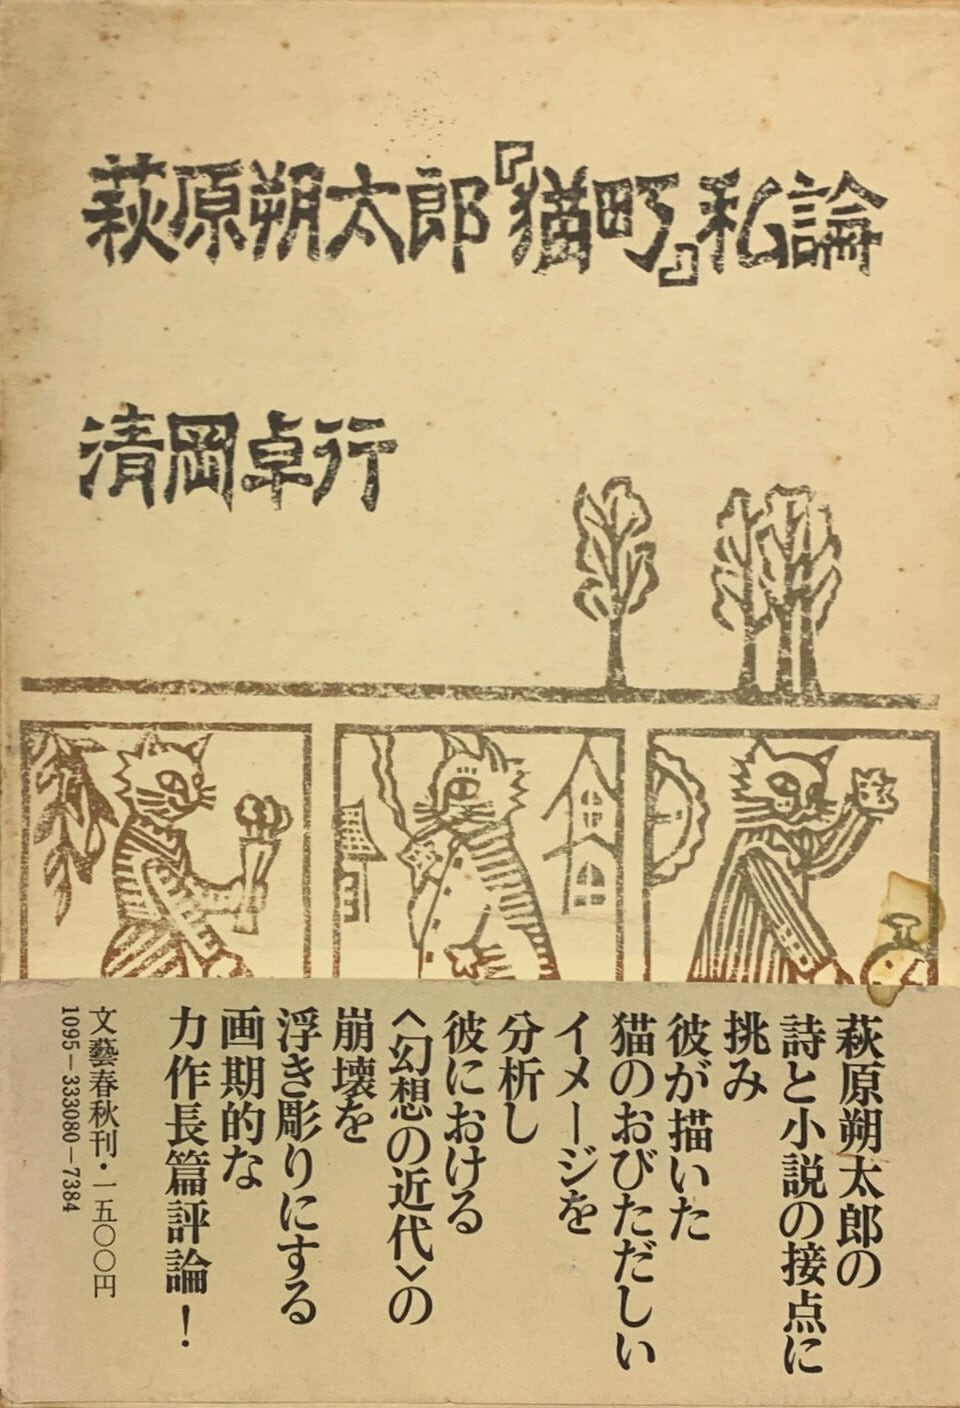 萩原朔太郎『猫町』私論
清岡卓行
萩原朔太郎の
詩と小説の接点に
挑み
彼が描いた
猫のおびただしい
イメージを
分析し
彼における
〈幻想の近代〉の
崩壊を
浮き彫りにする
画期的な
力作長篇評論！
文藝春秋刊・一五〇〇円
1095-333080-7384